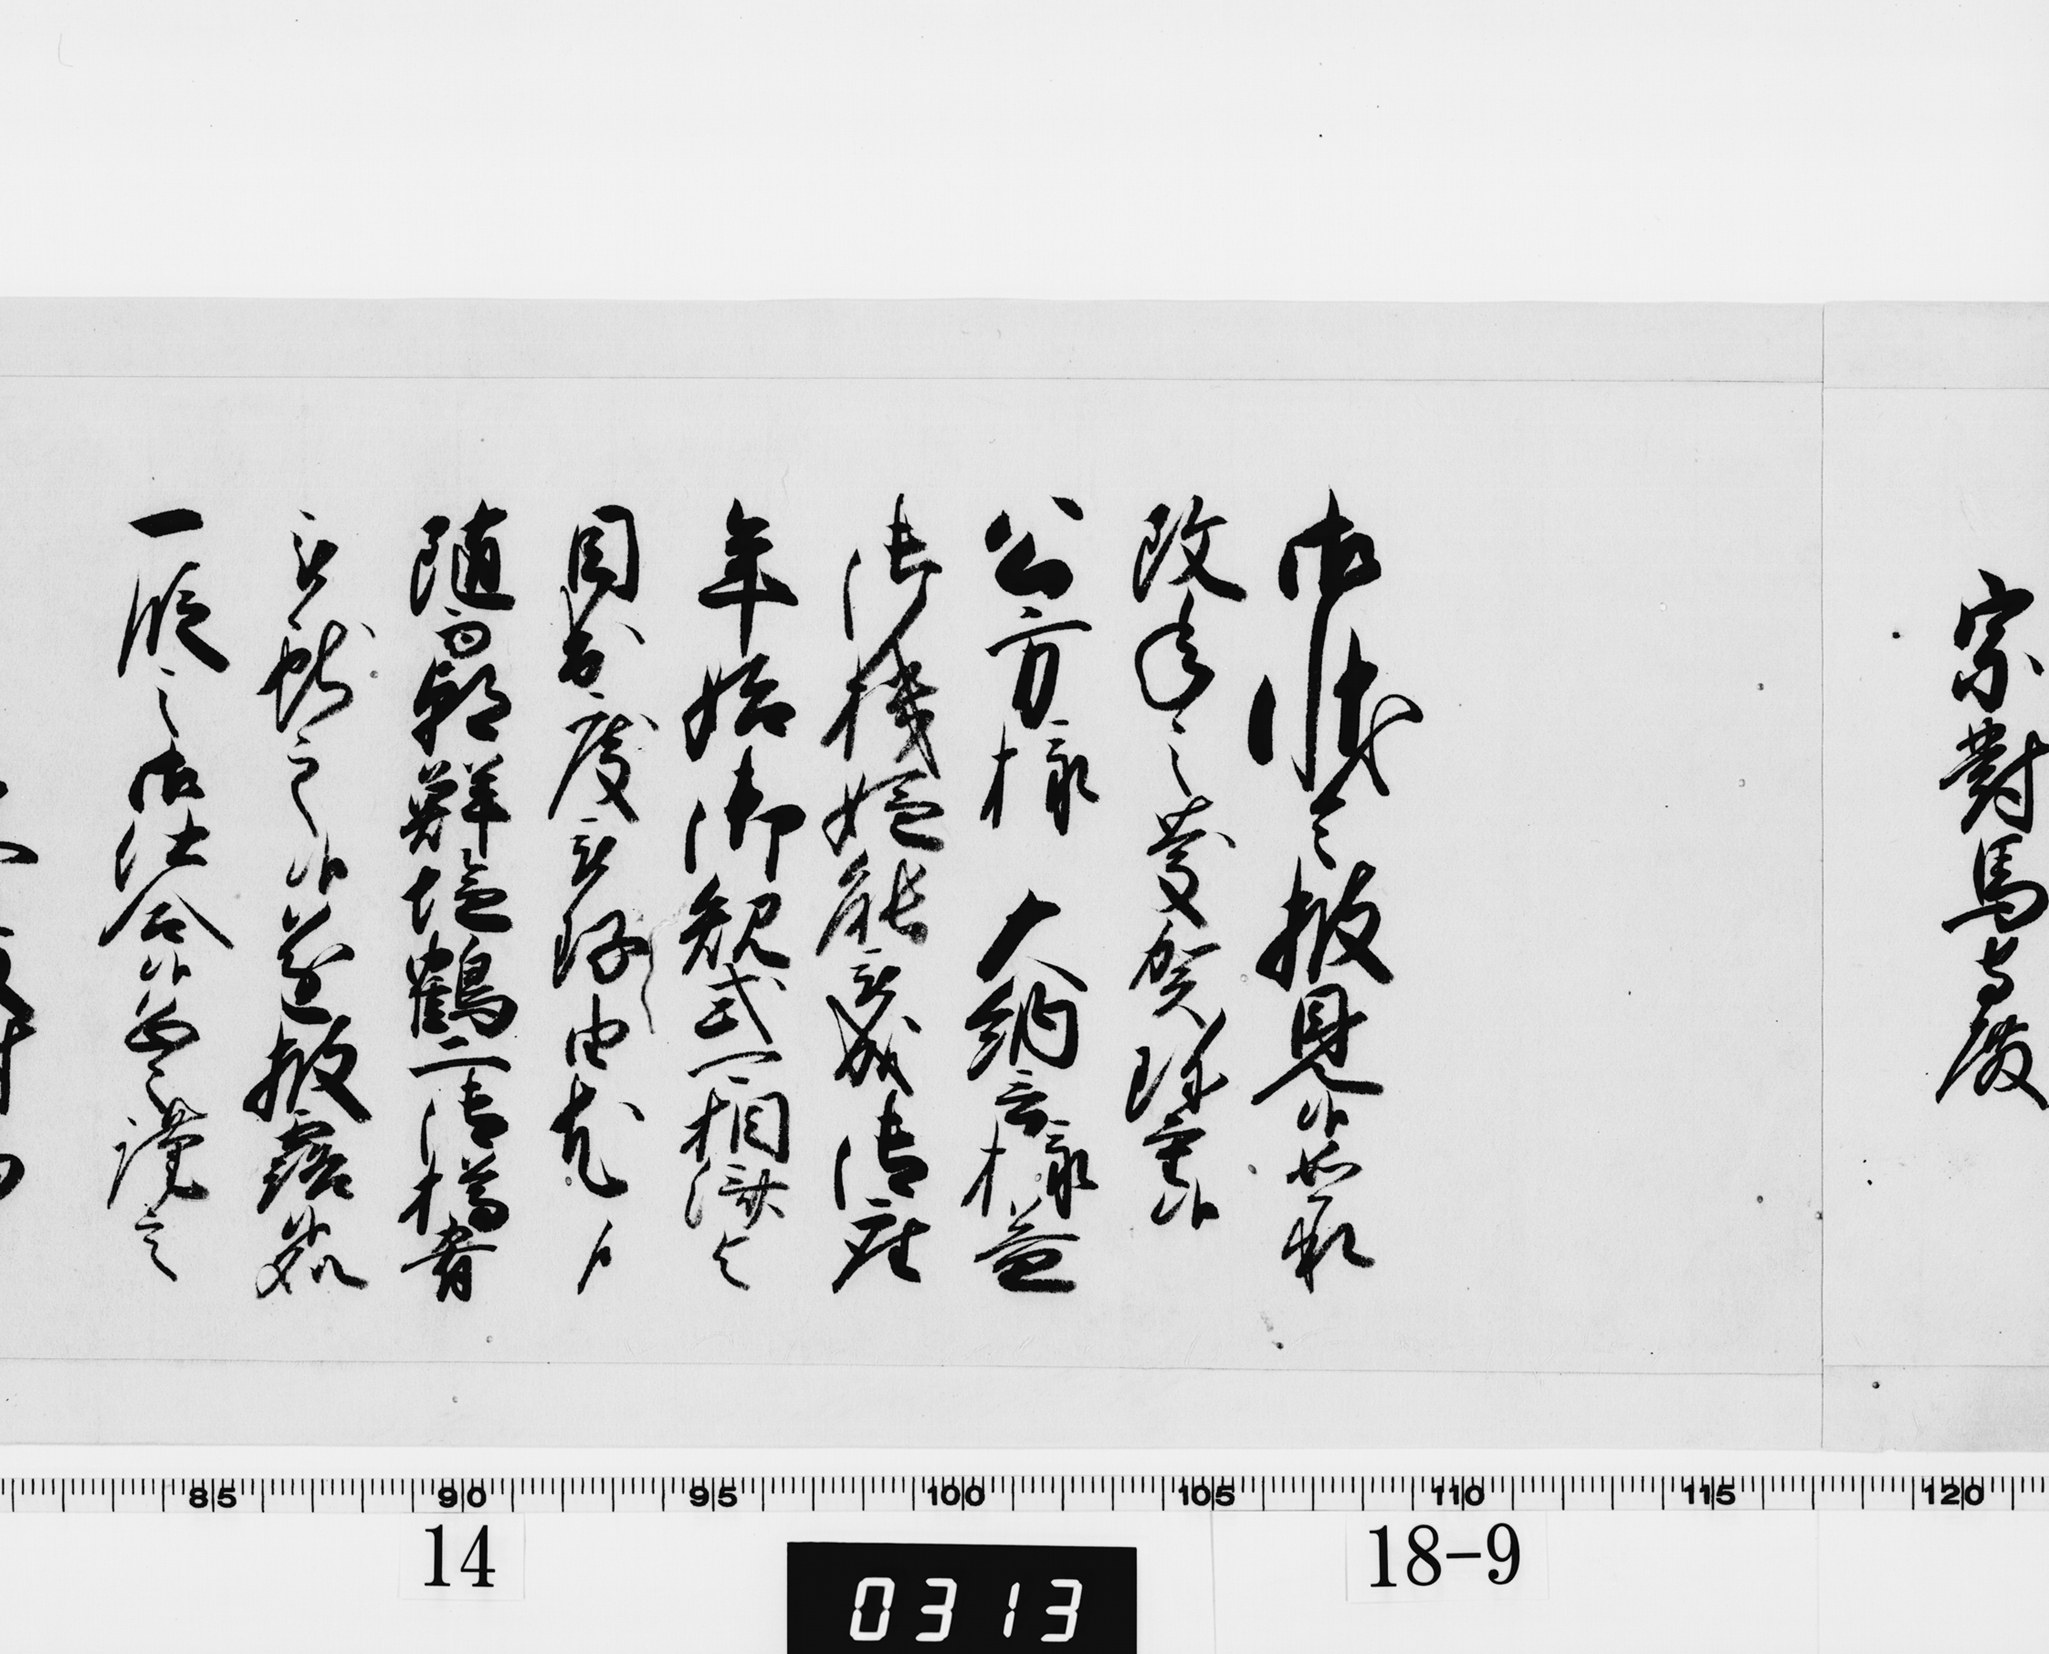 宗對馬守殿
御状令披見候如承
改年之慶賀珍重候
公方様　大納言様益
御機嫌能被成御座
年始御規式相濟
目出度被存由尤候
随而朝鮮塩鶴二御樽肴
被献之候遂披露候処
一段之御仕合候恐々謹言
85 90 95 100 105 110 115 120
14
18-9
0313